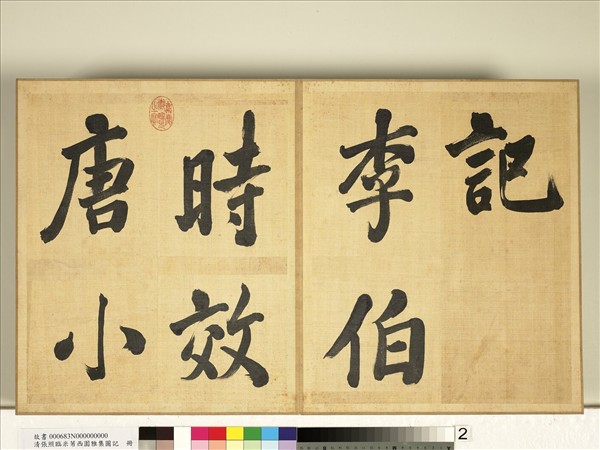 記
李伯
時效
唐小
故書 000683N000000000
清張照臨米芾西園雅集圖記 冊
2